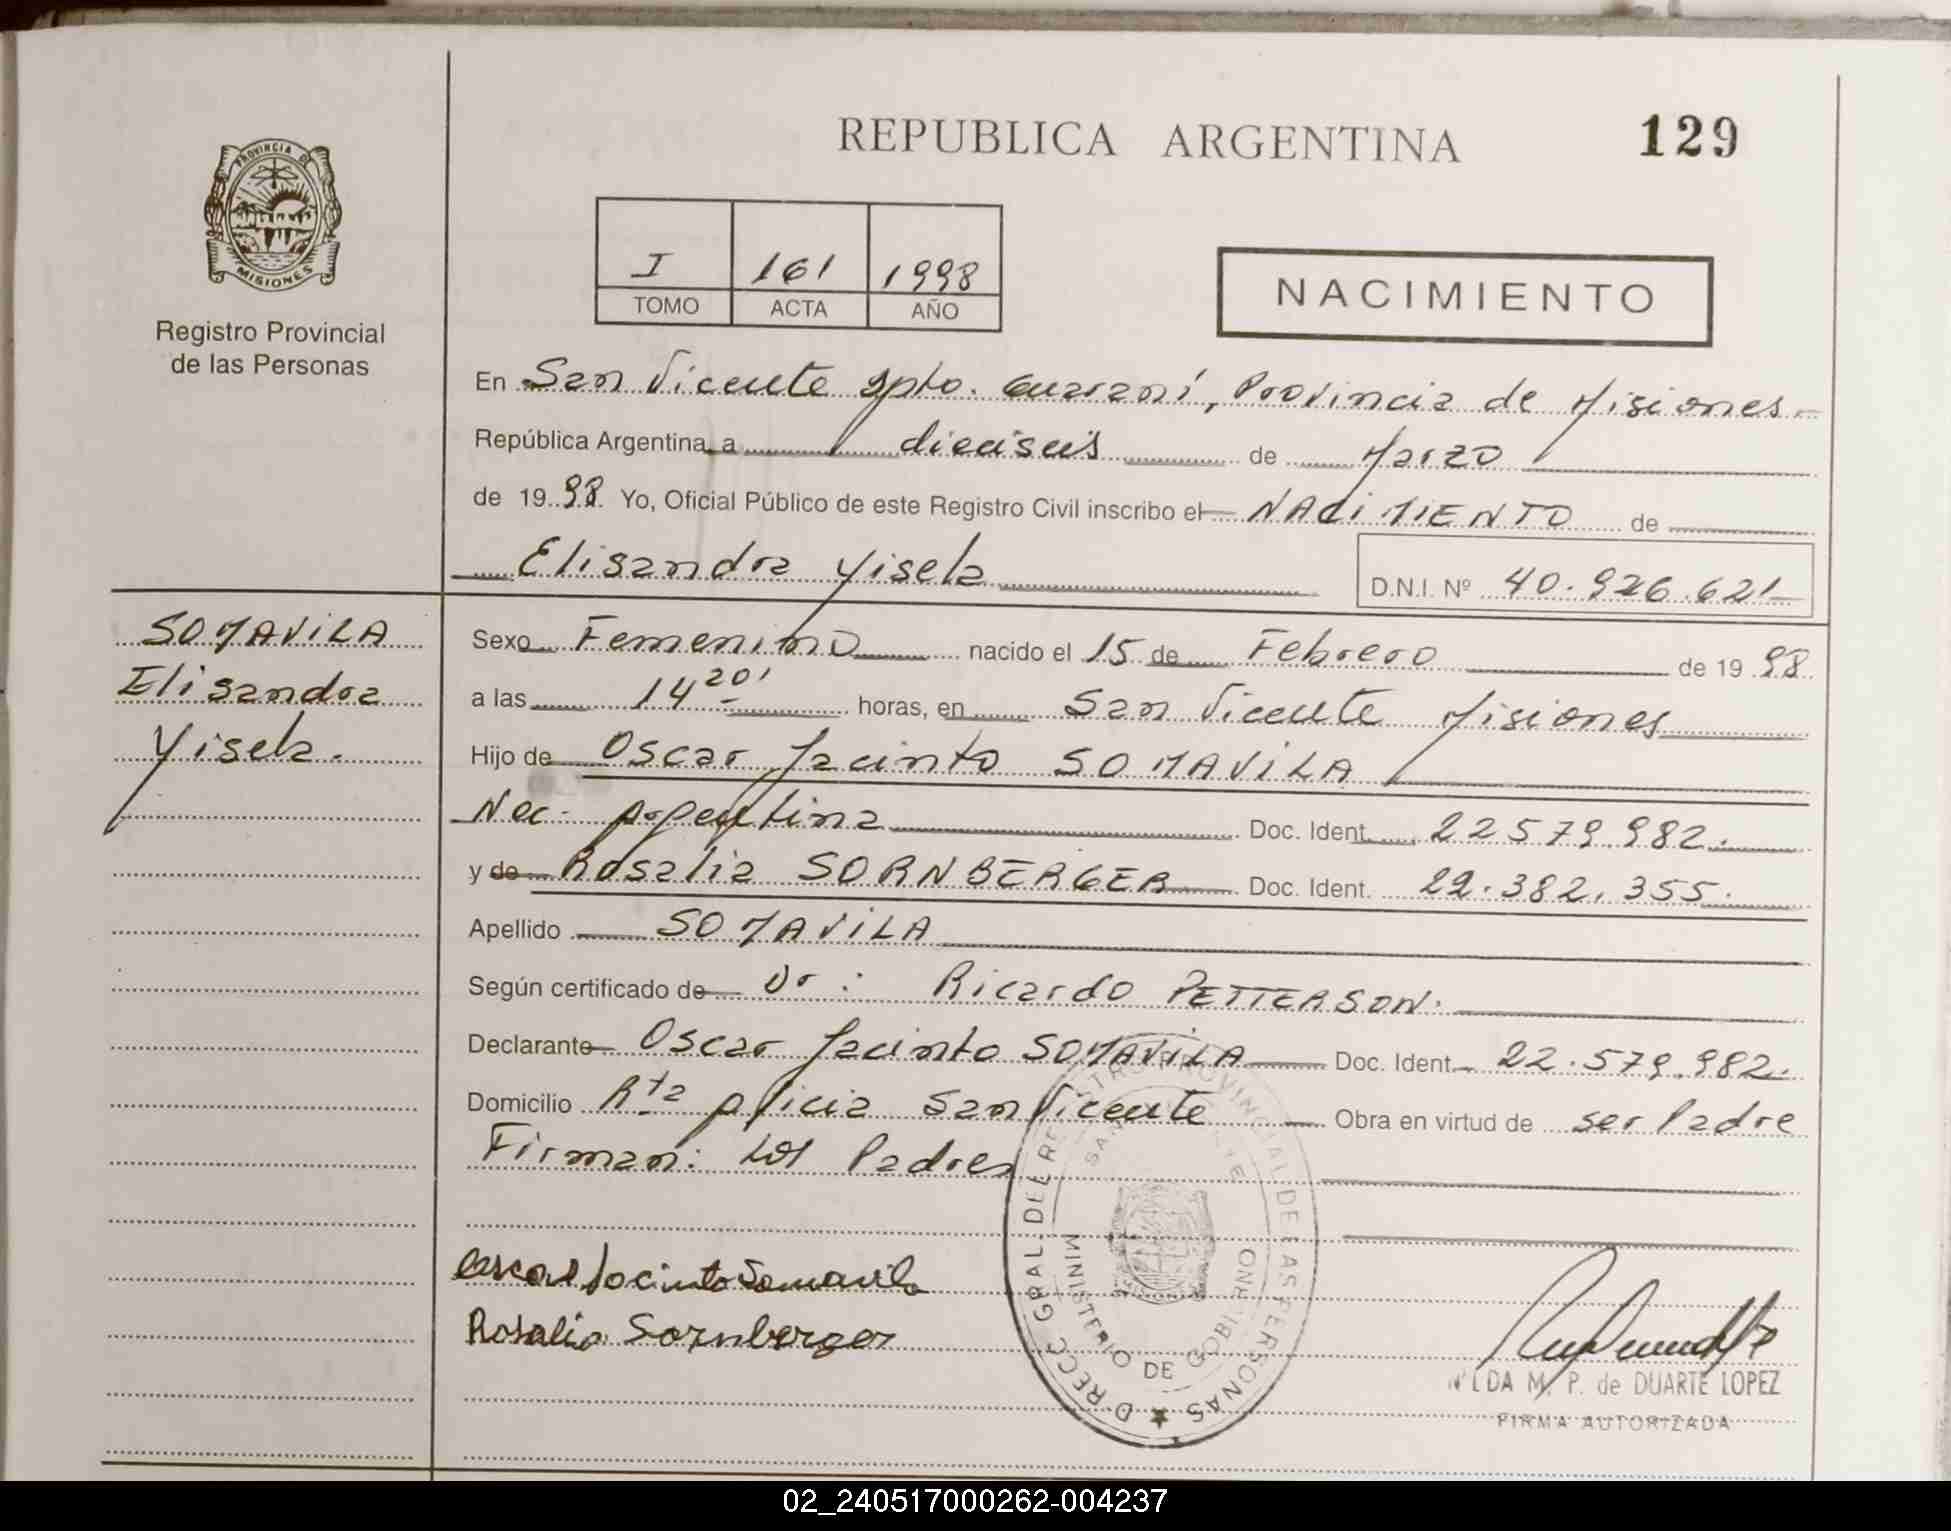 REPUBLICA ARGENTINA
129
PROVINCIA DE
MISIONES
Registro Provincial
de las Personas
I 161 1998
TOMO ACTA AÑO
NACIMIENTO
En San Vicente Dpto. Guaraní, Provincia de Misiones.-
República Argentina, a dieciseis de Marzo
de 1998. Yo, Oficial Público de este Registro Civil inscribo el NACIMIENTO de
Elisandra Yisela
D.N.I. Nº 40.926.621
SOMAVILA
Elisandra
Yisela.
Sexo Femenino nacido el 15 de Febrero de 1998.
a las 14 20' horas, en San Vicente Misiones
Hijo de Oscar Jacinto SOMAVILA
Nac. Argentina Doc. Ident. 22579.982.
y de Rosalia SORNBERGER Doc. Ident. 22.382.355.
Apellido SOMAVILA
Según certificado de Dr: Ricardo PETTERSON.
Declarante Oscar Jacinto SOMAVILA Doc. Ident. 22.579.982.
Domicilio Rta Alicia San Vicente Obra en virtud de ser Padre
Firman: Los Padres
Oscar Jacinto Somavila
Rosalia Sornberger
DIRECC. GRAL. DEL REGISTRO PROVINCIAL DE LAS PERSONAS
SAN VICENTE
MINISTERIO DE GOBIERNO
M. P. de DUARTE LOPEZ
FIRMA AUTORIZADA
02_240517000262-004237